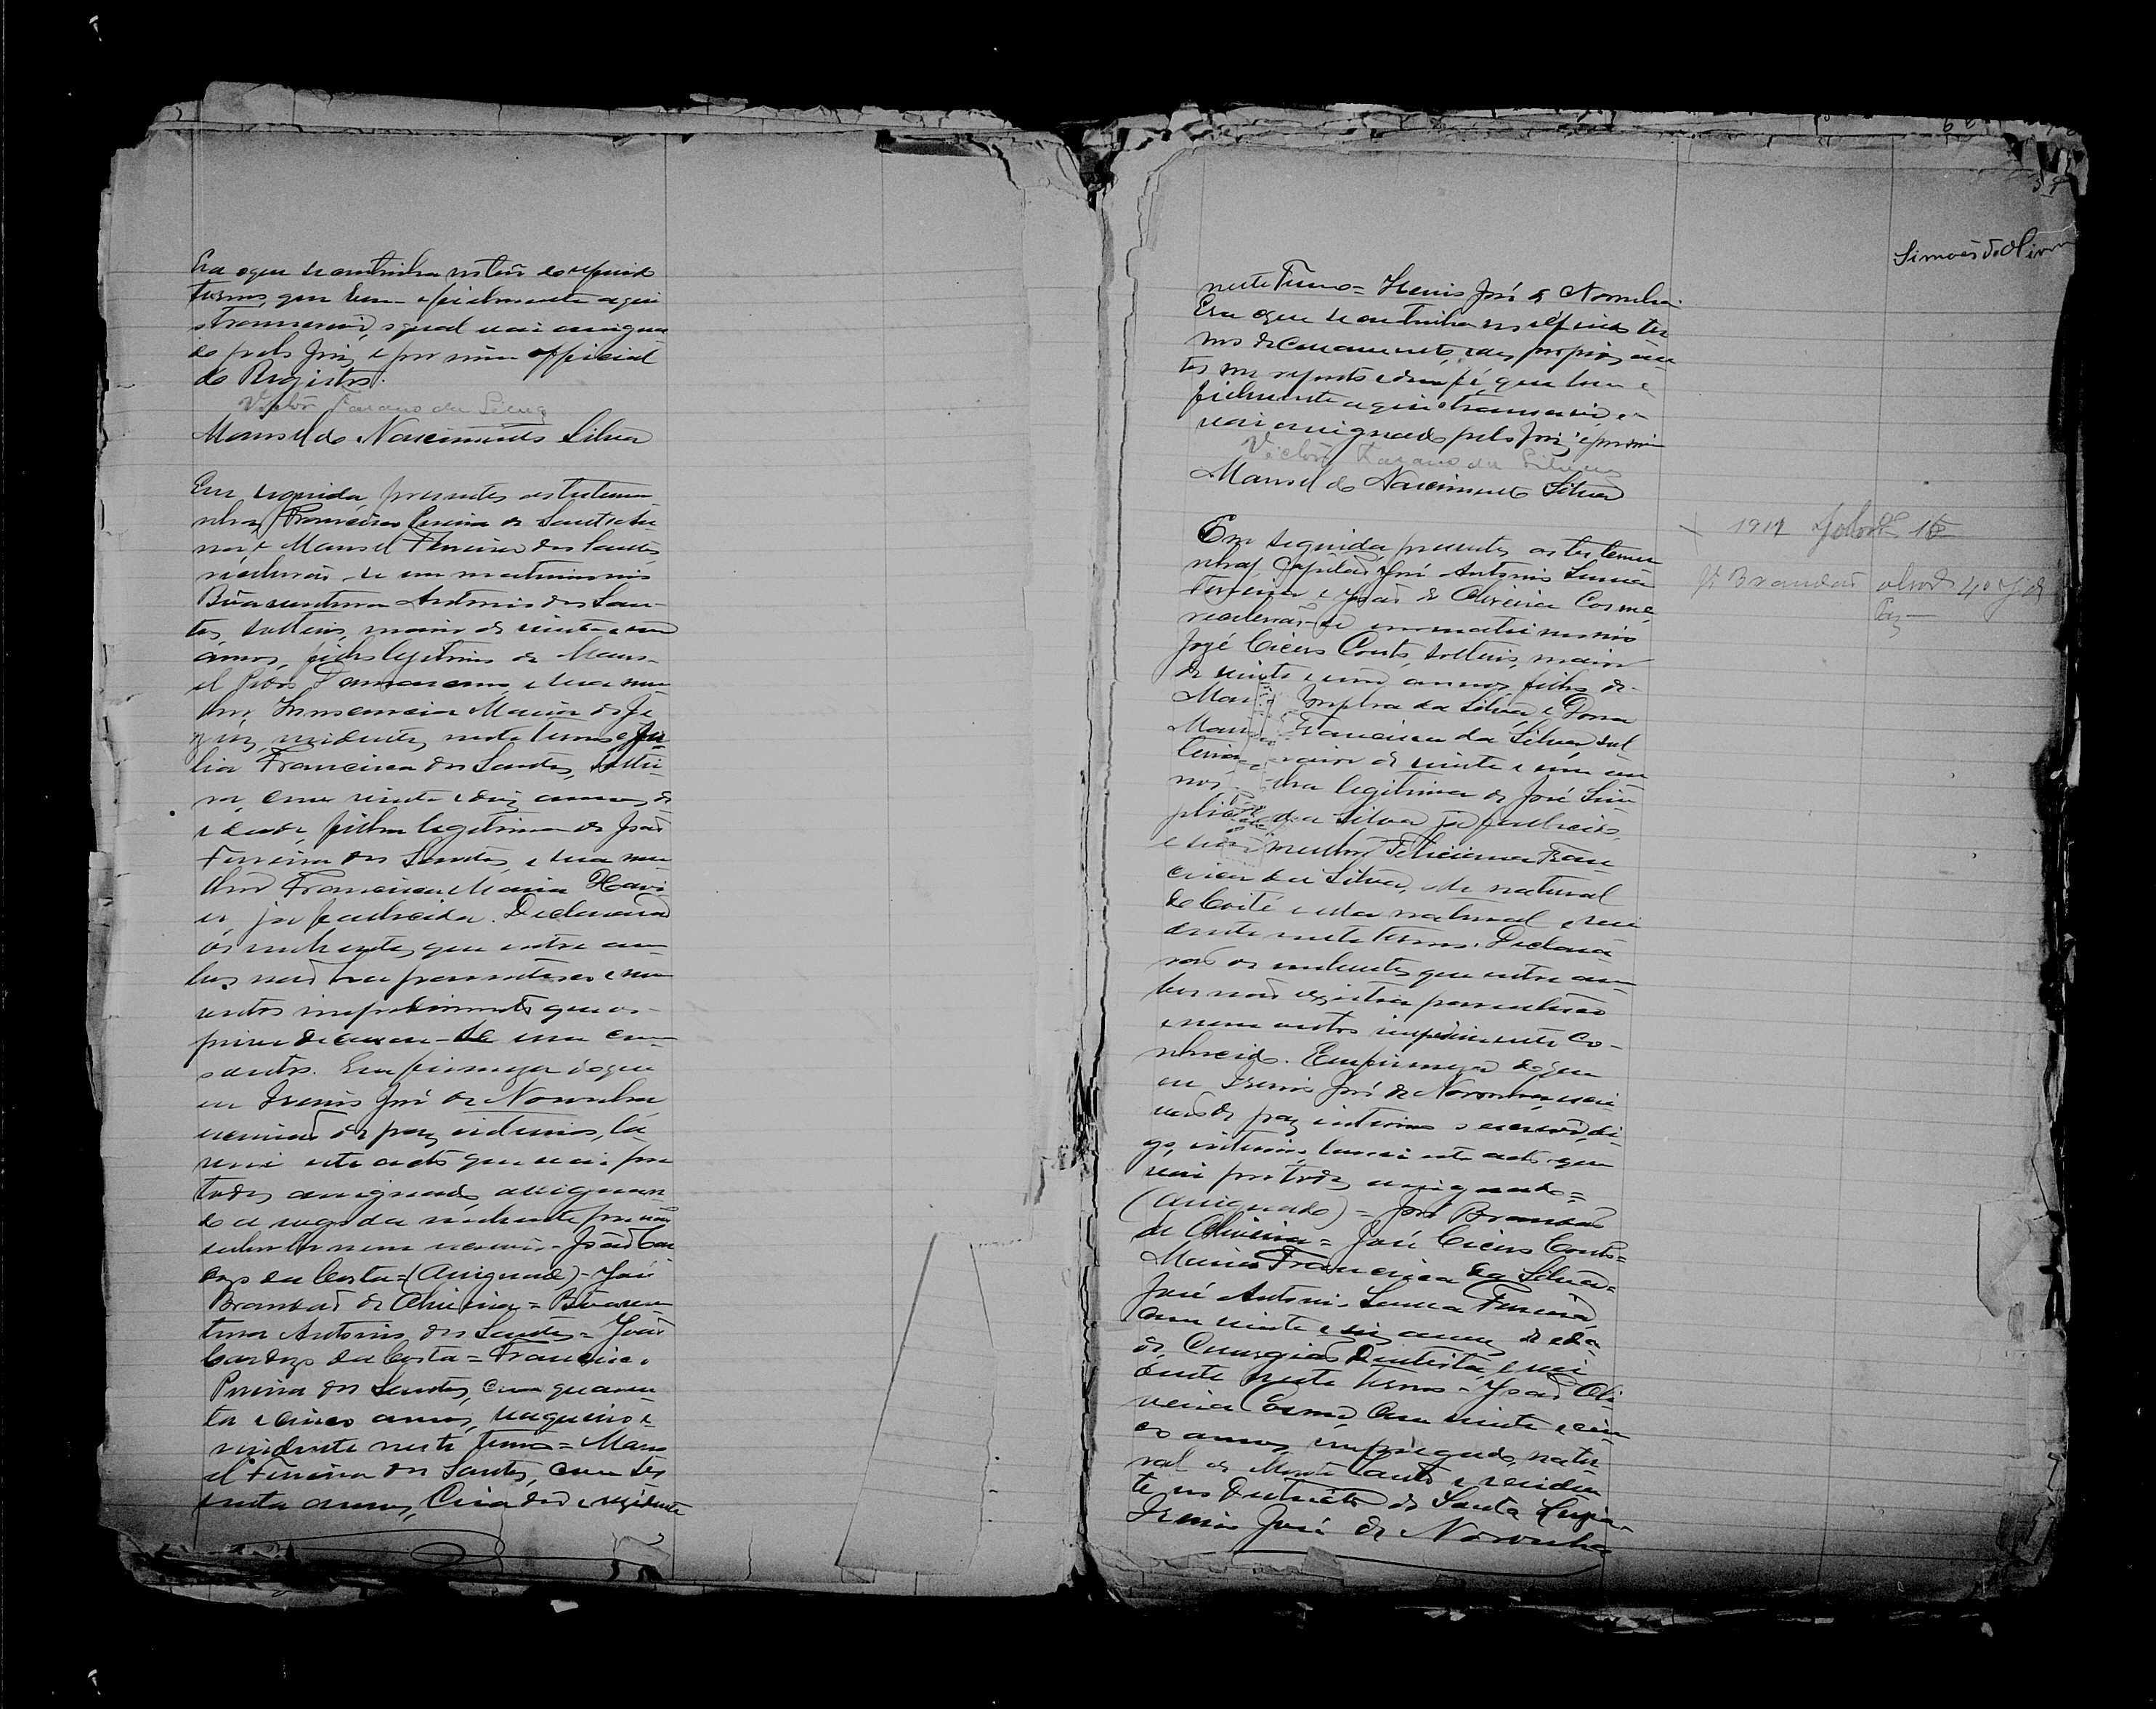 Era o que se continha no teor do referido
termo, que bem e fielmente aqui
o transcrevi, o qual vai assigna
do pelo Juiz e por mim official
do Registro.
Victor da Silva
Manoel do Nascimento Silva
Em seguida presentes as testemu
nhas Francisco Pereira dos Santos
e Manoel Ferreira dos Santos,
receberão-se em matrimonio
Bôaventura Antonio dos San-
tos, solteiro, maior de vinte e um
annos, filho legitimo de Mano-
el e sua mu
lher Innocencia Maria de Je
zus, residentes neste termo e Ju
lia Francisca dos Santos, soltei-
ra, com vinte e dois annos de
idade, filha legitima de João
Ferreira dos Santos, e sua mu
lher Francisca Maria Xavi
er, ja fallecida. Declararão
os nubentes que entre am
bos não ha parentesco e nem
outro impedimento que os
prive de casarem-se um com
o outro. Em firmeza do que
eu Irenio José de Noronha
escrivão de paz interino, la
vrei este acto que vai por
todos assignado, assignan
do a rogo da nubente por não
saber ler nem escrever - João Car
dozo da Costa = (Assignado) - José
Brandão de Oliveira = Bôaven
tura Antonio dos Santos = João
Cardozo da Costa = Francisco
Pereira dos Santos, com quaren
ta e cinco annos, vaqueiro e
residente neste termo = Mano
el Ferreira dos Santos, com ses
senta annos, Criador e rezidente
Simões de Oliveira
neste Termo = Irenio José de Noronha.
Era o que se continha no referido ter
mo de casamento, cujos proprios au
tos me reporto e dou fé, que bem e
fielmente aqui o transcrevi, e
vai assignado pelo Juiz e por mim
Victor da Silva
Manoel do Nascimento Silva
Em seguida presentes as testemu
nhas, Capitão José Antonio
Ferreira e João de Oliveira Cosme,
receberão-se em matrimonio
José Cicero Couto, solteiro, maior
de vinte e um annos, filho de
da Silva e Dona
Maria Francisca da Silva, sol
teira, maior de vinte e um an
nos, filha legitima de José Sim
plicio da Silva ja fallecido,
e sua mulher Feliciana Fran
cisca da Silva, elle natural
do Coité e ella natural e resi
dente neste termo. Declara
rão os nubentes que entre am
bos não existia parentesco
e nem outro impedimento co-
nhecido. Em firmeza do que
eu Irenio José de Noronha, escri
vão de paz interino o escrevi, di-
go, interino, lavrei este acto que
vai por todos assignado =
(Assignado) = José Brandão
de Oliveira = José Cicero Couto =
Maria Francisca da Silva =
José Antonio Ferreira,
com vinte e annos de ida
de, Cirurgião Dentista, e resi
dente neste termo = João Oli-
veira Cosme, com vinte e cin
co annos, empregado, natu
ral de Monte Santo e residen
te no Districto de Santa Luzia =
Irenio José de Noronha
1912
Brandão
Paz